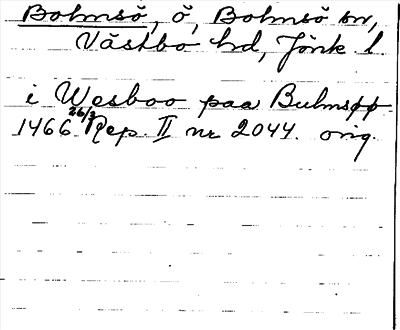 Bolmsö, ö, Bolmsö sn,
Västbo hd, Jönk l
i Wesboo paa Bulmsøø
1466 26/3 Rep. II nr 2044. orig.